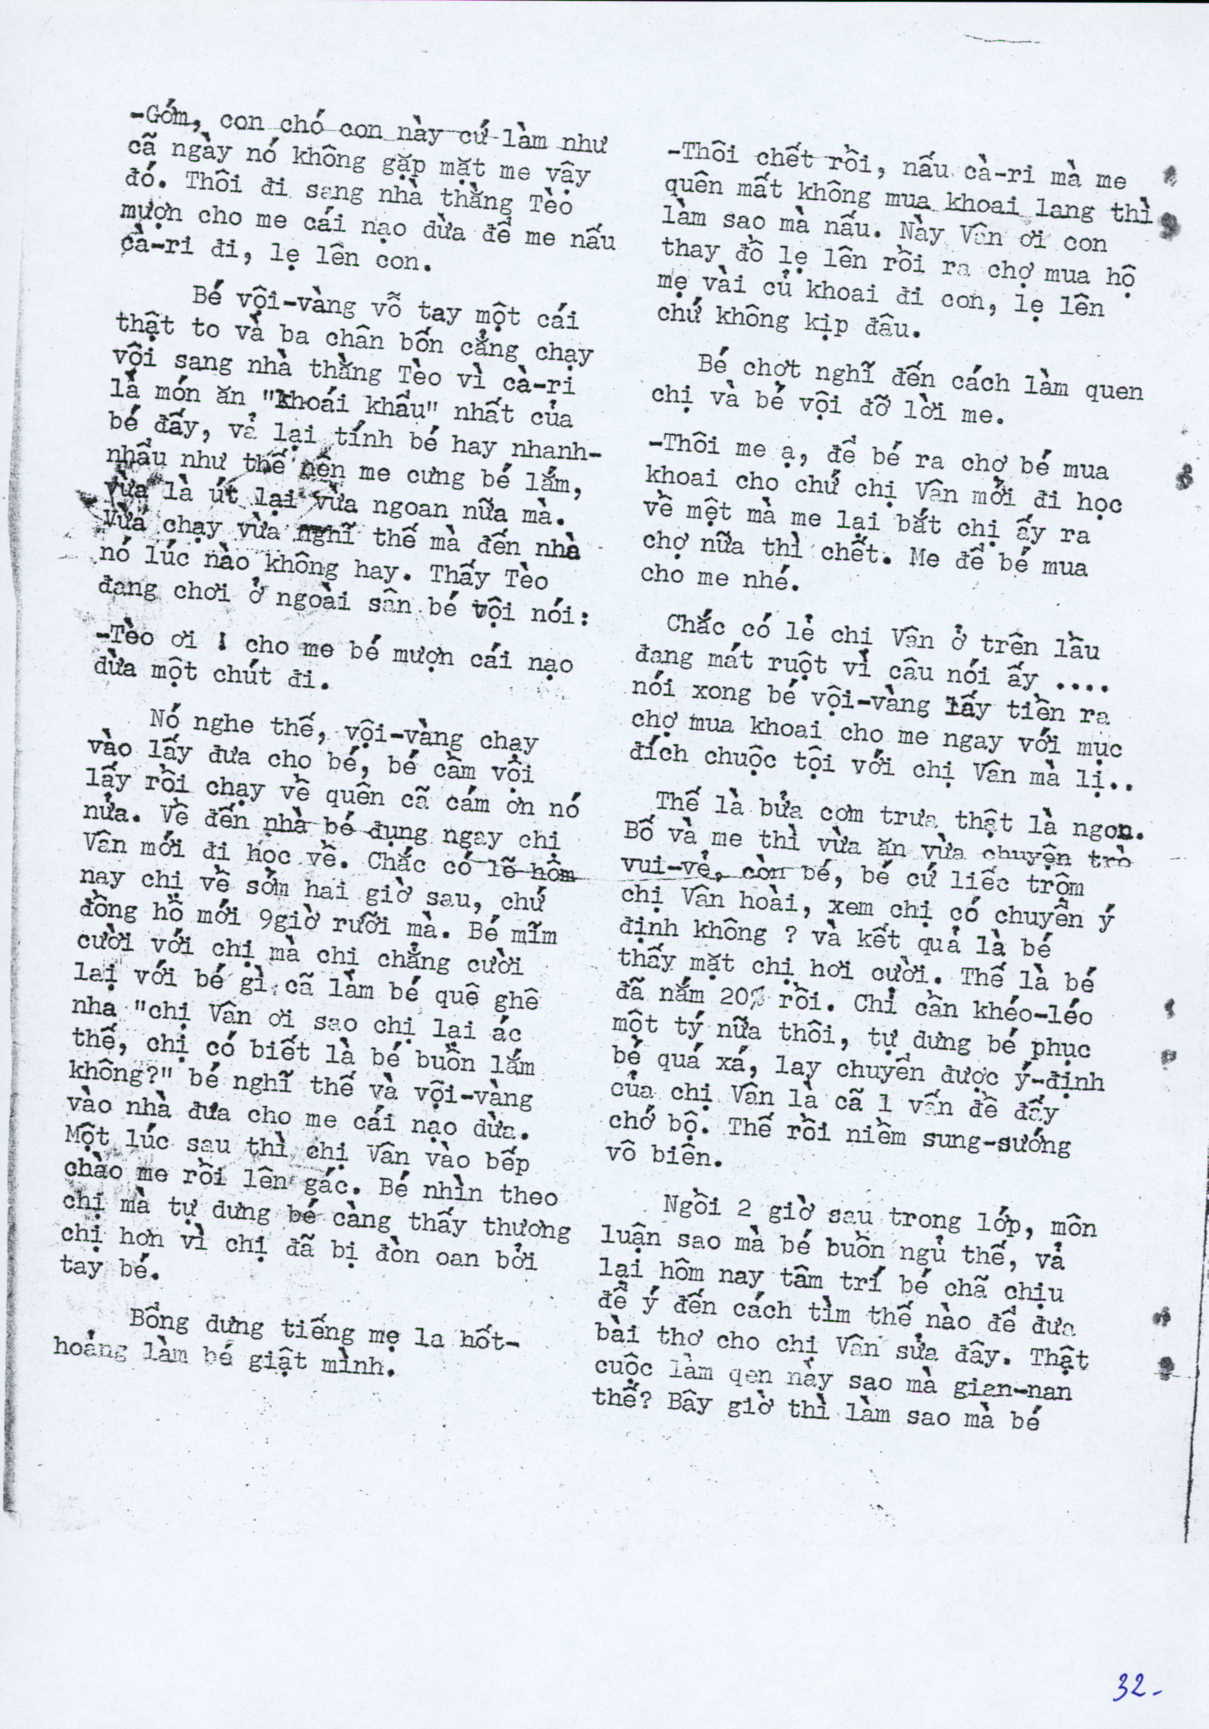 -Gớm, con chó con này cứ làm như
cã ngày nó không gặp mặt me vậy
đó. Thôi đi sang nhà thằng Tèo
mượn cho me cái nạo dừa để me nấu
cà-ri đi, lẹ lên con.
Bé vội-vàng vỗ tay một cái
thật to và ba chân bốn cẳng chạy
vội sang nhà thằng Tèo vì cà-ri
là món ăn "khoái khẩu" nhất của
bé đấy, vả lại tính bé hay nhanh-
nhẩu như thế nên me cưng bé lắm,
vừa là út lại vừa ngoan nữa mà.
Vừa chạy vừa nghĩ thế mà đến nhà
nó lúc nào không hay. Thấy Tèo
đang chơi ở ngoài sân bé vội nói:
-Tèo ơi ! cho me bé mượn cái nạo
dừa một chút đi.
Nó nghe thế, vội-vàng chạy
vào lấy đưa cho bé, bé cầm vội
lấy rồi chạy về quên cã cám ơn nó
nửa. Về đến nhà bé đụng ngay chị
Vân mới đi học về. Chắc có lẽ hôm
nay chị về sớm hai giờ sau, chứ
đồng hồ mới 9giờ rưỡi mà. Bé mĩm
cười với chị mà chị chẳng cười
lại với bé gì cã làm bé quê ghê
nha "chị Vân ơi sao chị lại ác
thế, chị có biết là bé buồn lắm
không?" bé nghĩ thế và vội-vàng
vào nhà đưa cho me cái nạo dừa.
Một lúc sau thì chị Vân vào bếp
chào me rồi lên gác. Bé nhìn theo
chị mà tự dưng bé càng thấy thương
chị hơn vì chị đã bị đòn oan bởi
tay bé.
Bổng dưng tiếng mẹ la hốt-
hoảng làm bé giật mình.
-Thôi chết rồi, nấu cà-ri mà me
quên mất không mua khoai lang thì
làm sao mà nấu. Này Vân ơi con
thay đồ lẹ lên rồi ra chợ mua hộ
mẹ vài củ khoai đi con, lẹ lên
chứ không kịp đâu.
Bé chợt nghĩ đến cách làm quen
chị và bé vội đỡ lời me.
-Thôi me ạ, để bé ra chợ bé mua
khoai cho chứ chị Vân mới đi học
về mệt mà me lại bắt chị ấy ra
chợ nữa thì chết. Me để bé mua
cho me nhé.
Chắc có lẻ chị Vân ở trên lầu
đang mát ruột vì câu nói ấy ....
nói xong bé vội-vàng lấy tiền ra
chợ mua khoai cho me ngay với mục
đích chuộc tội với chị Vân mà lị..
Thế là bửa cơm trưa thật là ngon.
Bố và me thì vừa ăn vừa chuyện trò
vui-vẻ, còn bé, bé cứ liếc trộm
chị Vân hoài, xem chị có chuyển ý
định không ? và kết quả là bé
thấy mặt chị hơi cười. Thế là bé
đã nắm 20% rồi. Chỉ cần khéo-léo
một tý nữa thôi, tự dưng bé phục
bé quá xá, lay chuyển được ý-định
của chị Vân là cã 1 vấn đề đấy
chớ bộ. Thế rồi niềm sung-sướng
vô biên.
Ngồi 2 giờ sau trong lớp, môn
luận sao mà bé buồn ngủ thế, vả
lại hôm nay tâm trí bé chã chịu
để ý đến cách tìm thế nào để đưa
bài thơ cho chị Vân sửa đây. Thật
cuộc làm qen này sao mà gian-nan
thế? Bây giờ thì làm sao mà bé
32-